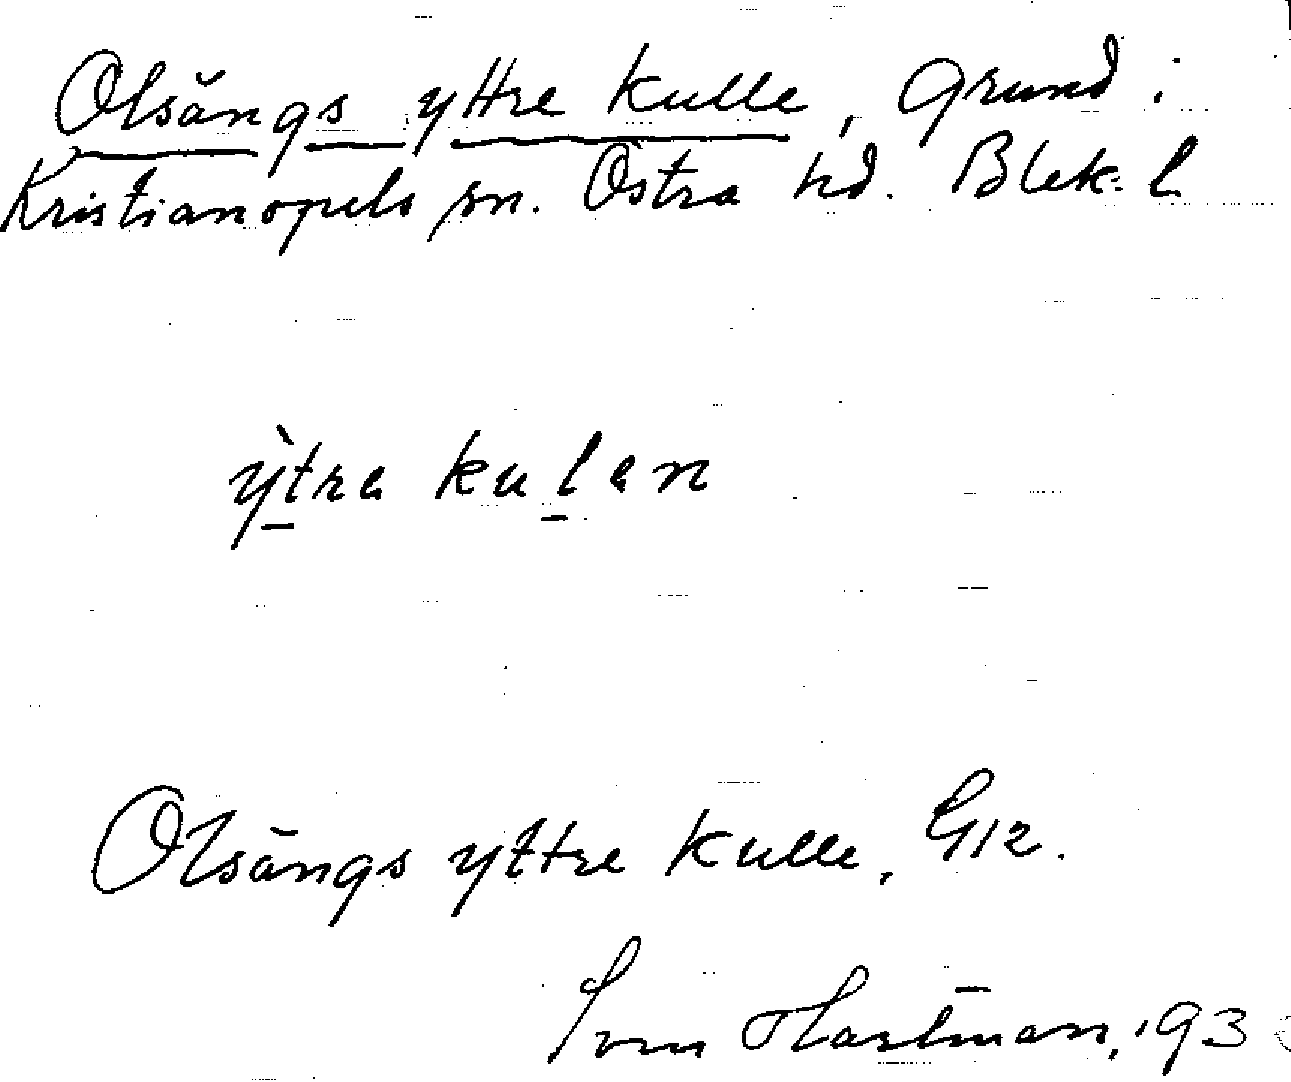 Olsängs yttre kulle, Grund i
Kristianopels sn. Östra hd. Blek. l
ỳtre kulen
Olsängs yttre kulle, G12.
Sven Hartman, 193